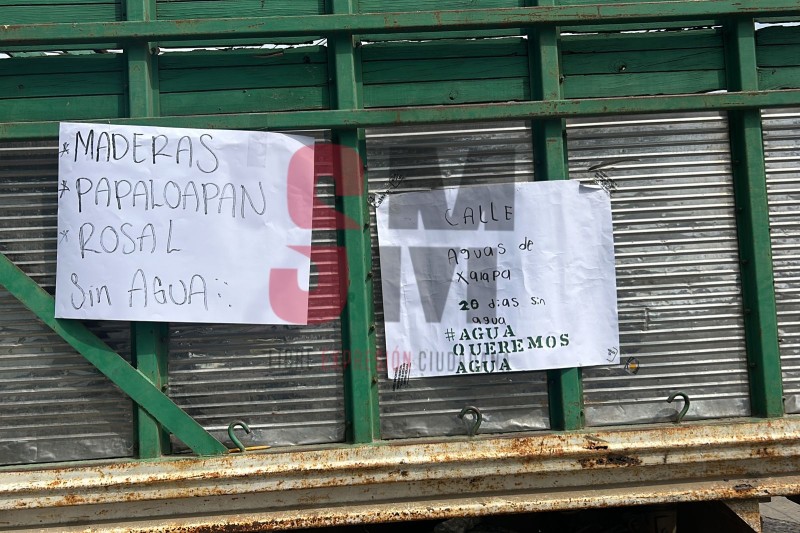 * MADERAS
* PAPALOAPAN
* ROSAL
Sin AGUA
CALLE
Aguas de
Xalapa
20 dias sin
agua
#AGUA
QUEREMOS
AGUA
SM